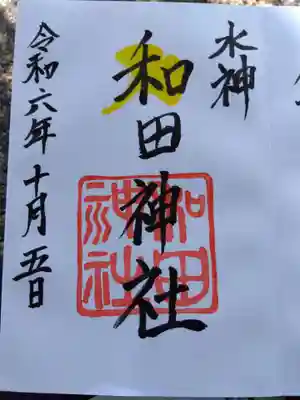 水神
和田神社
和田
神社
令和六年十月五日